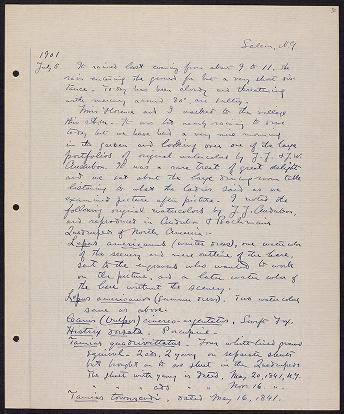 Salem, N.Y.
1901
July 5. It rained last evening from about 9 to 11, the
rain entering the ground for but a very short dis-
tance. To-day has been cloudy and threatening
with mercury around 80°, and sultry.
Florence and I walked to the village
this
to-day but we have had a very nice morning
in the garden and looking over one of the large
portfolios of original watercolors by J. J. & J. W.
Audubon. It was a rare treat & great delight
and we sat about the large dining-room table
listening to what the ladies said as we
examined picture after picture. I noted the
following original watercolors by J. J. Audubon,
and reproduced in Audubon & Bachman's
Quadrupeds of North America:-
Lepus americanus (winter dress), one water color
of the scenery and mere outline of the hare,
sent to the engravers who wanted to work
on the picture, and a later water color of
the hare without the scenery.
Lepus americanus (summer dress). Two watercolors
same as above.
Canis (Vulpes) cinereo-argentatus, Swift Fox.
Hystrix dorsata. Porcupine.
Tamias quadrivittatus. Four-white-lined ground
squirrel. 2 ads, 2 young on separate sheets
but brought on to one sheet in the Quadrupeds
The sheet with young is dated, May 20, 1841, N.Y.
" " " ads " Nov. 16. " "
Tamias townsendi, dated May 16, 1841.